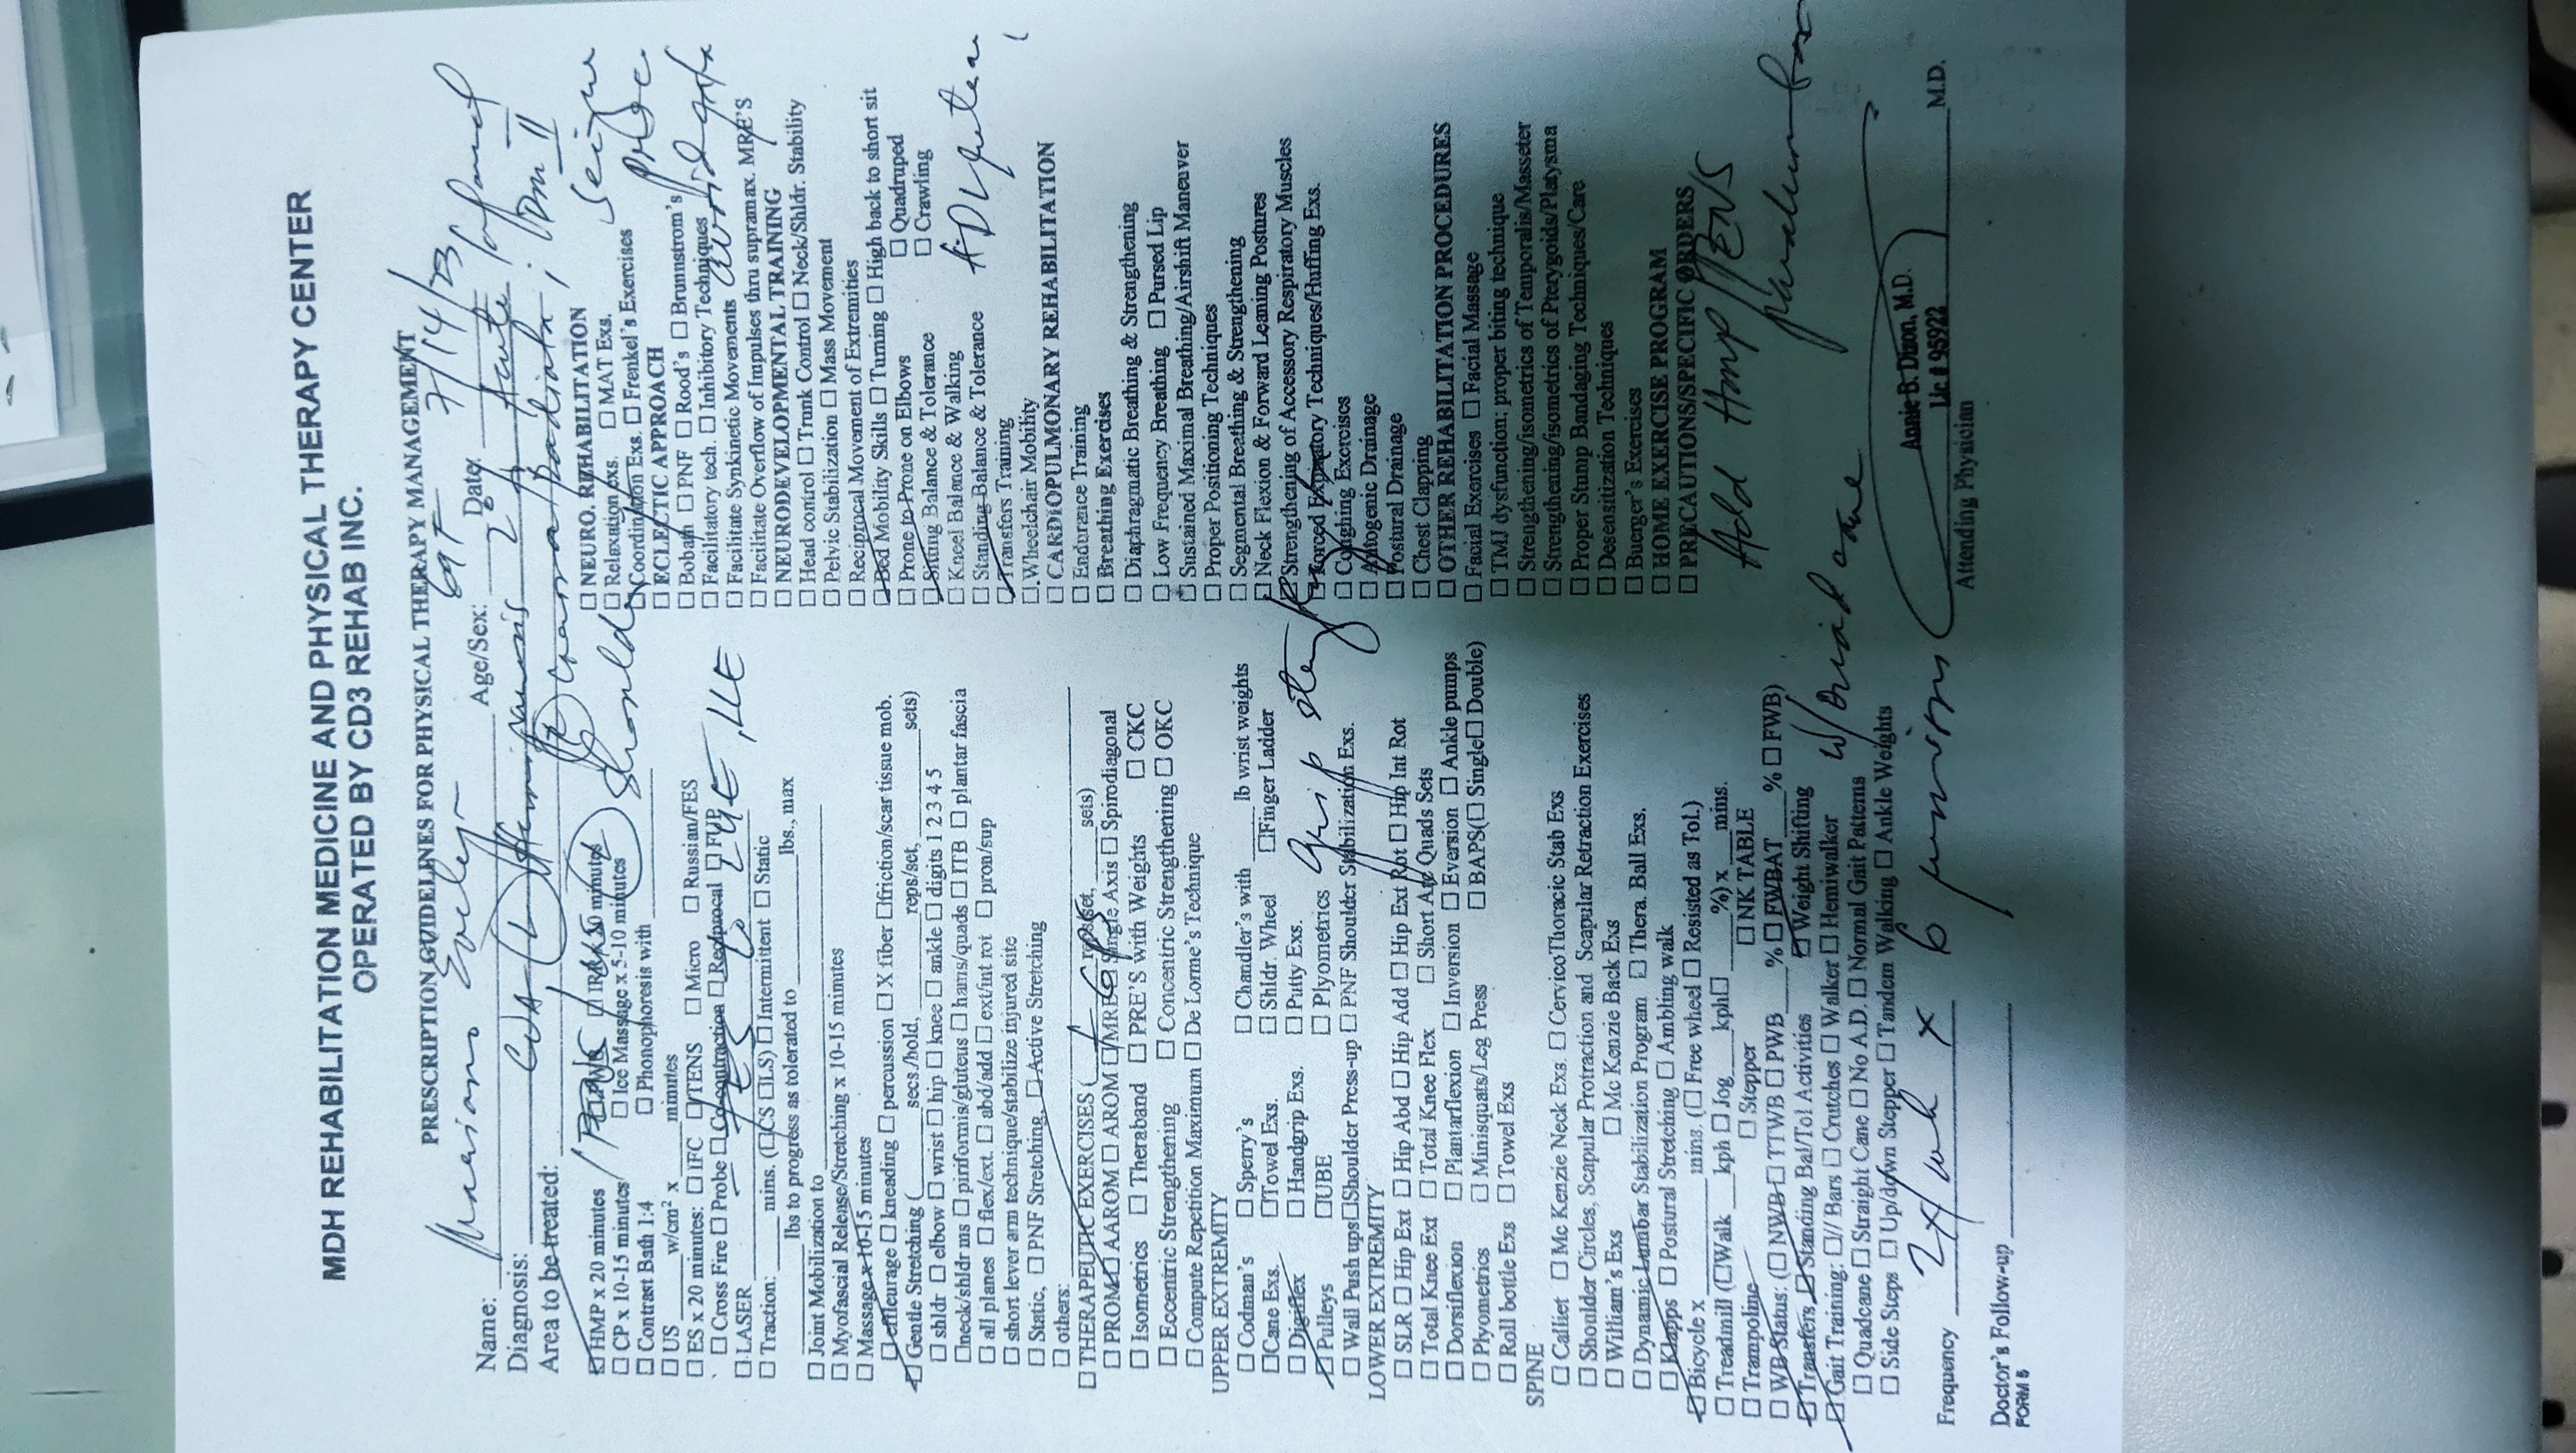 MDH REHABILITATION MEDICINE AND PHYSICAL THERAPY CENTER
OPERATED BY CD3 REHAB INC.
PRESCRIPTION GUIDELINES FOR PHYSICAL THERAPY MANAGEMENT
Name: Mariano Evelyn Age/Sex: 69F Date: 7/14/23
Diagnosis: CVA (L) Hemiparesis 2° to Acute Infarct
Area to be treated: (R) corona radiata; DM II
☑ HMP x 20 minutes ☐ PWB ☐ IRR x 20 minutes
☐ CP x 10-15 minutes ☐ Ice Massage x 5-10 minutes (L) Shoulder
☐ Contrast Bath 1:4 ☐ Phonophoresis with
☐ US ____ w/cm² x ____ minutes
☐ ES x 20 minutes: ☐ IFC ☐ TENS ☐ Micro ☐ Russian/FES
☐ Cross Fire ☐ Probe ☐ Co-contraction ☐ Reciprocal ☐ FUP
☐ LASER FES to LUE, LLE
☐ Traction: ____ mins. (☐CS ☐LS) ☐ Intermittent ☐ Static
____ lbs to progress as tolerated to ____ lbs., max
☐ Joint Mobilization to
☐ Myofascial Release/Stretching x 10-15 minutes
☐ Massage x 10-15 minutes
☐ effleurage ☐ kneading ☐ percussion ☐ X fiber ☐friction/scar tissue mob.
☑ Gentle Stretching (____ secs./hold, ____ reps/set, ____ sets)
☐ shldr ☐ elbow ☐ wrist ☐ hip ☐ knee ☐ ankle ☐ digits 1 2 3 4 5
☐neck/shldr ms ☐ piriformis/gluteus ☐ hams/quads ☐ ITB ☐ plantar fascia
☐ all planes ☐ flex/ext. ☐ abd/add ☐ ext/int rot ☐ pron/sup
☐ short lever arm technique/stabilize injured site
☐ Static, ☐ PNF Stretching, ☐ Active Stretching
☐ others:
☐ THERAPEUTIC EXERCISES (____ reps/set, ____ sets)
☐ PROM ☑ AAROM ☐ AROM ☐ MRE ☐ Single Axis ☐ Spirodiagonal
☐ Isometrics ☐ Theraband ☐ PRE'S with Weights ☐ CKC
☐ Eccentric Strengthening ☐ Concentric Strengthening ☐ OKC
☐ Compute Repetition Maximum ☐ De Lorme's Technique
UPPER EXTREMITY
☐ Codman's ☐ Sperry's ☐ Chandler's with ____ lb wrist weights
☐Cane Exs. ☐Towel Exs. ☐ Shldr. Wheel ☐Finger Ladder
☐ Digiflex ☐ Handgrip Exs. ☐ Putty Exs.
☑ Pulleys ☐UBE ☐ Plyometrics grip
☐ Wall Push ups☐Shoulder Press-up ☐ PNF Shoulder Stabilization Exs.
LOWER EXTREMITY
☐ SLR ☐ Hip Ext ☐ Hip Abd ☐ Hip Add ☐ Hip Ext Rot ☐ Hip Int Rot
☐ Total Knee Ext ☐ Total Knee Flex ☐ Short Arc Quads Sets
☐ Dorsiflexion ☐ Plantarflexion ☐ Inversion ☐ Eversion ☐ Ankle pumps
☐ Plyometrics ☐ Minisquats/Leg Press ☐ BAPS(☐ Single☐ Double)
☐ Roll bottle Exs ☐ Towel Exs
SPINE
☐ Calliet ☐ Mc Kenzie Neck Exs. ☐ CervicoThoracic Stab Exs
☐ Shoulder Circles, Scapular Protraction and Scapular Retraction Exercises
☐ William's Exs ☐ Mc Kenzie Back Exs
☐ Dynamic Lumbar Stabilization Program ☐ Thera. Ball Exs.
☐ Klapps ☐ Postural Stretching ☐ Ambling walk
☑ Bicycle x ____ mins. (☐ Free wheel ☐ Resisted as Tol.)
☐ Treadmill (☐Walk ___kph ☐ Jog___kph☐ ____%) x ___mins.
☐ Trampoline ☐ Stepper ☐ NK TABLE
☐ WB Status: (☐ NWB ☐ TTWB ☐ PWB___% ☐ FWBAT___% ☐ FWB)
☑ Transfers ☑ Standing Bal/Tol Activities ☑ Weight Shifting
☑ Gait Training: ☐// Bars ☐ Crutches ☐ Walker ☐ Hemiwalker w/ quad cane
☐ Quadcane ☐ Straight Cane ☐ No A.D. ☐ Normal Gait Patterns
☐ Side Steps ☐ Up/down Stepper ☐ Tandem Walking ☐ Ankle Weights
Frequency 2x/wk x 6 sessions
Doctor's Follow-up
FORM 5
☐ NEURO. REHABILITATION
☐ Relaxation exs. ☐ MAT Exs. Seizure
☑ Coordination Exs. ☐ Frenkel's Exercises prec
☐ ECLECTIC APPROACH
☐ Bobath ☐ PNF ☐ Rood's ☐ Brunnstrom's
☐ Facilitatory tech. ☐ Inhibitory Techniques avoid
☐ Facilitate Synkinetic Movements
☐ Facilitate Overflow of Impulses thru supramax. MRE'S
☐ NEURODEVELOPMENTAL TRAINING
☐ Head control ☐ Trunk Control ☐ Neck/Shldr. Stability
☐ Pelvic Stabilization ☐ Mass Movement
☐ Reciprocal Movement of Extremities
☑ Bed Mobility Skills ☐ Turning ☐ High back to short sit
☐ Prone to Prone on Elbows ☐ Quadruped
☑ Sitting Balance & Tolerance ☐ Crawling
☐ Kneel Balance & Walking
☐ Standing Balance & Tolerance ADL
☑ Transfers Training
☐ Wheelchair Mobility
☐ CARDIOPULMONARY REHABILITATION
☐ Endurance Training
☐ Breathing Exercises
☐ Diaphragmatic Breathing & Strengthening
☐ Low Frequency Breathing ☐ Pursed Lip
☐ Sustained Maximal Breathing/Airshift Maneuver
☐ Proper Positioning Techniques
☐ Segmental Breathing & Strengthening
☐ Neck Flexion & Forward Leaning Postures
☐ Strengthening of Accessory Respiratory Muscles
☐ Forced Expiratory Techniques/Huffing Exs.
☐ Coughing Exercises
☐ Autogenic Drainage
☐ Postural Drainage
☐ Chest Clapping
☐ OTHER REHABILITATION PROCEDURES
☐ Facial Exercises ☐ Facial Massage
☐ TMJ dysfunction; proper biting technique
☐ Strengthening/isometrics of Temporalis/Masseter
☐ Strengthening/isometrics of Pterygoids/Platysma
☐ Proper Stump Bandaging Techniques/Care
☐ Desensitization Techniques
☐ Buerger's Exercises
☐ HOME EXERCISE PROGRAM
☐ PRECAUTIONS/SPECIFIC ORDERS
Add HMP/TENS
paralumbar
Annie B. Dizon, M.D.
Lic # 95922 M.D.
Attending Physician